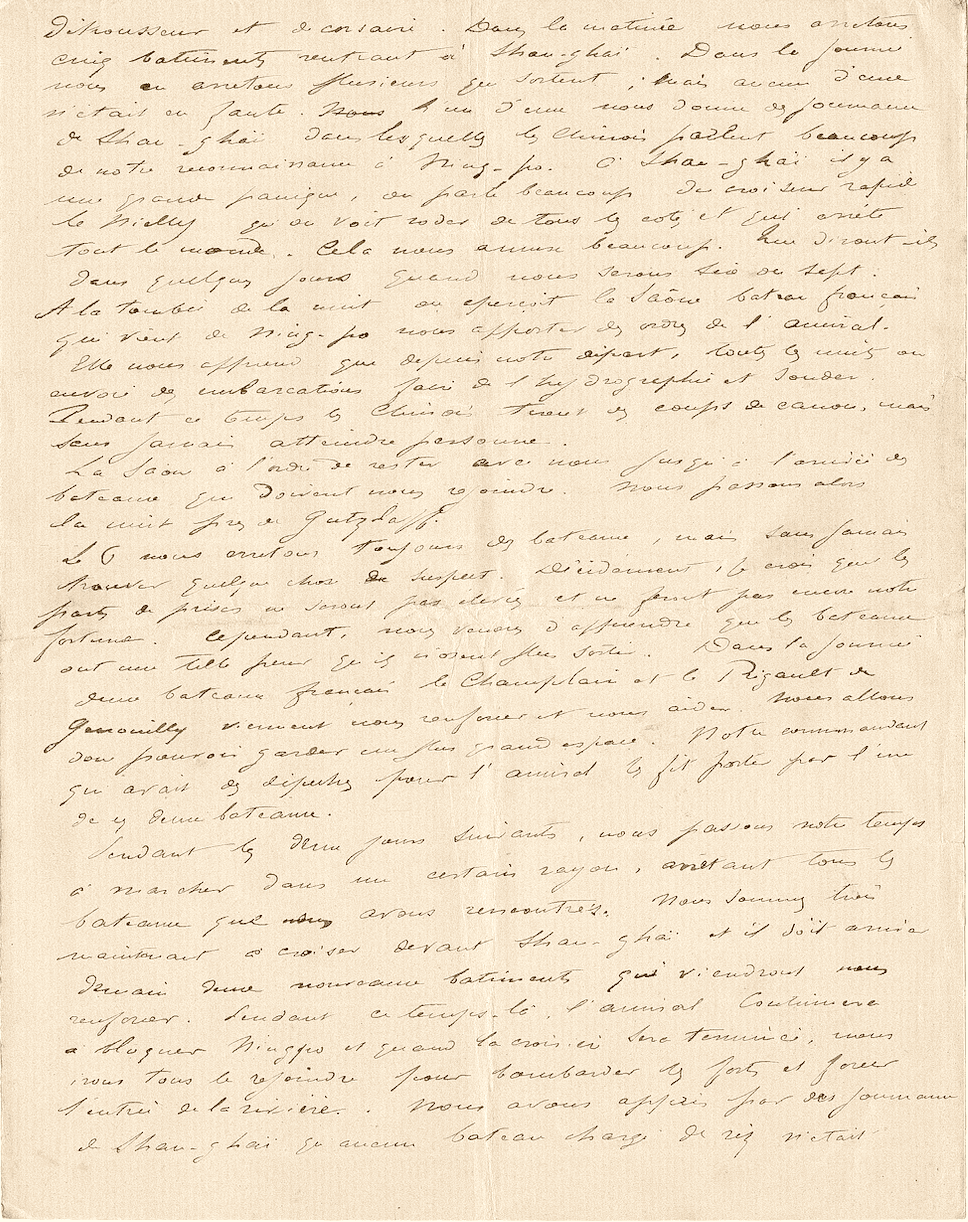 détrousseur et de corsaire. Dans la matinée nous arretons
cinq batiments rentrant à Shan-ghaï. Dans la journée
nous en arretons plusieurs qui sortent ; mais aucun d'eux
n'était en faute. Nous l'un d'eux nous donne des journaux
de Shan-ghaï dans lesquelles les Chinois parlent beaucoup
de notre reconnaissance à Ning-po. à Shan-ghaï il y a
une grande panique, on parle beaucoup du croiseur rapide
le Nielly qu'on voit roder de tous les cotés et qui arrête
tout le monde. Cela nous amuse beaucoup. Que diront-ils
dans quelques jours quand nous serons six ou sept.
A la tombée de la nuit on aperçoit la Saône bateau français
qui vient de Ning-po nous apporter des ordres de l'amiral.
Elle nous apprend que depuis notre départ, toutes les nuits on
envoie des embarcations faire de l'hydrographie et sonder.
Pendant ce temps les Chinois tirent des coups de canon, mais
sans jamais atteindre personne.
La Saone à l'ordre de rester avec nous jusqu'à l'arrivée des
bateaux qui doivent nous rejoindre. Nous passons alors
la nuit près de Gutzlaff.
Le 6 nous arretons toujours des bateaux, mais sans jamais
trouver quelque chose de suspect. Décidément, je crois que les
parts de prises ne seront pas élevées et ne feront pas encore notre
fortune. Cependant, nous venons d'apprendre que les bateaux
ont une telle peur qu'ils n'osent plus sortir. Dans la journée
deux bateaux français le Champlain et le Rigault de
Genouilly viennent nous renforcer et nous aider. Nous allons
donc pouvoir garder un plus grand espace. Notre commandant
qui avait des dépeches pour l'amiral les fit porter par l'un
de ces deux bateaux.
Pendant les deux jours suivants, nous passons notre temps
à marcher dans un certain rayon, arrêtant tous les
bateaux que nous avons rencontrés. Nous sommes trois
maintenant à croiser devant Shan-ghaï et il doit arriver
demain deux nouveaux batiments qui viendront nous
renforcer. Pendant ce temps-là, l'amiral continuera
à bloquer Ningpo et quand la croisière sera terminée, nous
irons tous le rejoindre pour bombarder les forts et forcer
l'entrée de la rivière. Nous avons appris par des journaux
de Shan-ghaï qu'aucun bateau chargé de riz n'était